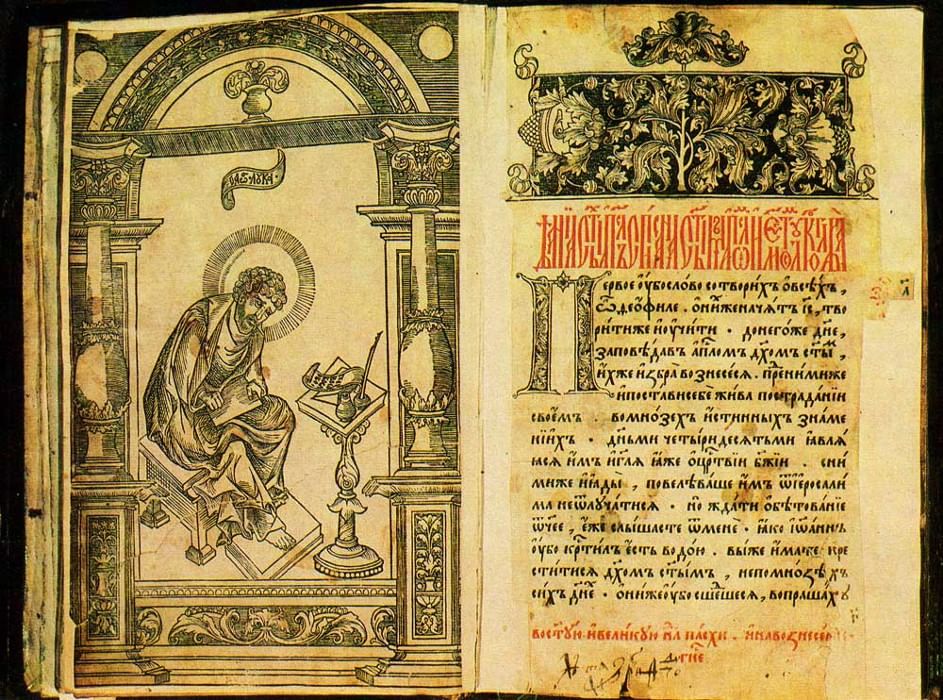 ст҃ы лꙋка
Первое ᲂу҆бо слово сотворихъ ѡ всѣхъ,
ѽ, ѳеѡ҆филе. ѡ҆ ниже начатъ і҆с҃, тво
рити же и҆ ᲂу҆чити. до него же дн҃е,
заповѣдавъ а҆пⷭ҇ломъ дх҃омъ ст҃ы,
и҆хже и҆збра вознесеся. пред ними же
и҆ постави себе жива по страданїи
своемъ. во мнозех и҆стинныхъ знаме
нїихъ. дньми четыридесятьми ꙗ҆вляꙗ
ися и҆мъ и҆ гл҃я ꙗ҆же ѡ҆ цр҃ствїи бж҃їи. с ни
ми же и҆ ꙗ҆ды, повелѣваше и҆мъ ѿ і҆еросали
ма не ѿлучатися. но ждати ѻ҆бѣтованїе
ѿч҃ее, є҆же слышасте ѿ мене. ꙗ҆ко і҆ѡ҆аннъ
ᲂу҆бо крⷭ҇тилъ є҆сть водою. вы же и҆мате кре
ститися дх҃омъ ст҃ымъ, не по мнозѣхъ
сихъ дн҃е. ѡ҆ни же ᲂу҆бо сшешеся, вопрашахꙋ
во ст҃ꙋю и҆ великꙋю нлⷣ пасхи. и҆ на вознесе
гнⷭ҇е